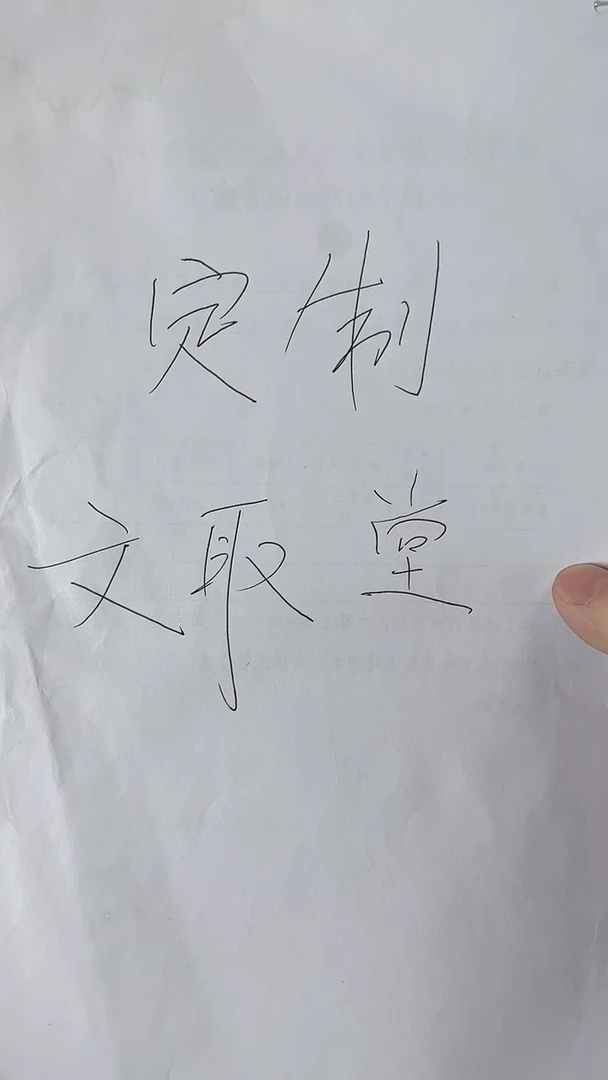 定制
文取堂